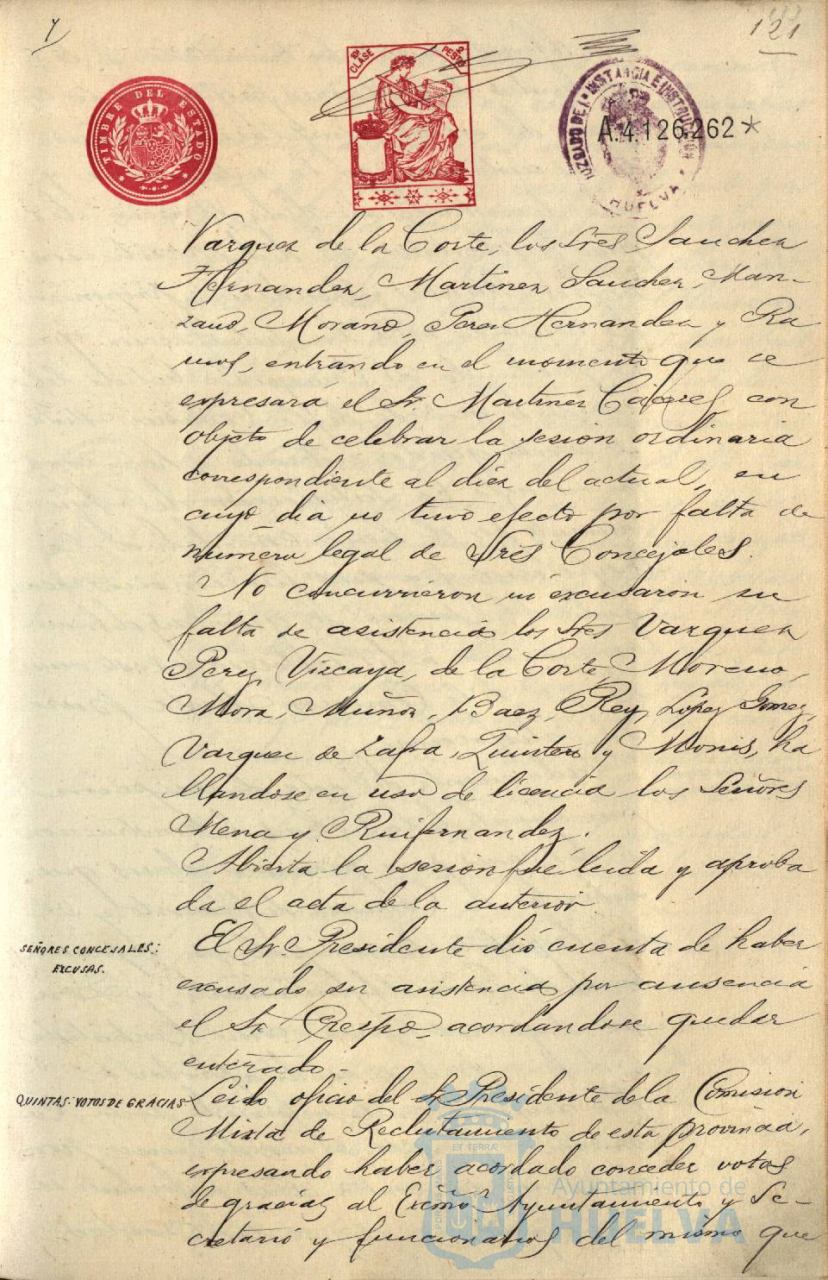 121
10ª CLASE 2 PESTS
TIMBRE DEL ESTADO
JUZGADO DE 1ª INSTANCIA E INSTRUCCION HUELVA
A.4.126.262 *
Varquez de la Corte, los Sres Sanchez
Hernandez, Martinez Sanchez, Man-
zano, Morano, Perez Hernandez y Ra
mos, entrando en el momento que se
expresará el Sr. Martinez Cáceres con
objeto de celebrar la sesion ordinaria
correspondiente al diez del actual, en
cuyo dia no tuvo efecto por falta de
numero legal de Sres Concejales.
No concurrieron ni excusaron su
falta de asistencia los Sres Varquez
Perez, Vizcaya, de la Corte, Moreno,
Mora, Muñoz, Baez, Rey, López Gomez,
Varquez de Zafra, Quintero y Monis, ha
llandose en uso de licencia los Señores
Mena y Ruifernandez.
Abierta la sesion fué leida y aproba
da el acta de la anterior
SEÑORES CONCEJALES:
EXCUSAS.
El Sr. Presidente dió cuenta de haber
excusado su asistencia por ausencia
el Sr Crespo, acordandose quedar
enterado.
QUINTAS: VOTOS DE GRACIAS
Leido oficio del Sr Presidente de la Comision
Mixta de Reclutamiento de esta provincia,
expresando haber acordado conceder votos
de gracias al Excmo. Ayuntamiento y Se-
cretario y funcionarios del mismo que
Ayuntamiento de
HUELVA